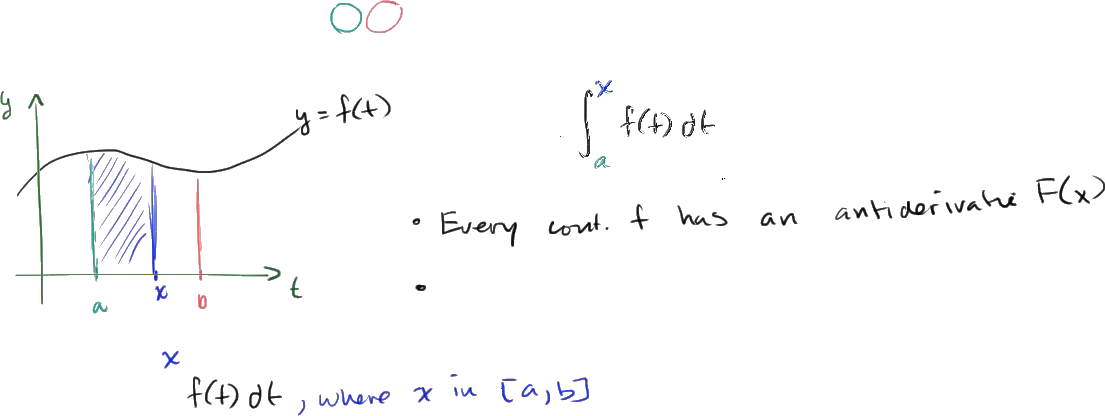 y
y = f(t)
∫_a^x f(t) dt
• Every cont. f has an antiderivative F(x)
•
t
a x b
x
f(t) dt, where x in [a,b]